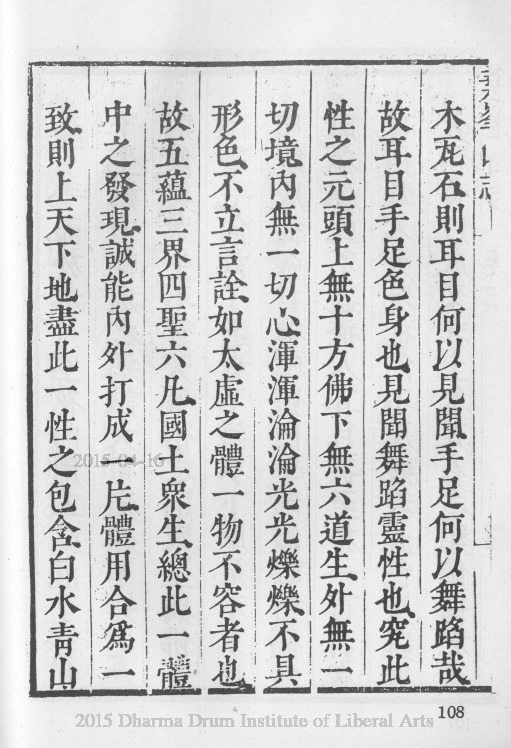 木瓦石則耳目何以見聞手足何以舞蹈哉
故耳目手足色身也見聞舞蹈靈性也究此
性之元頭上無十方佛下無六道生外無一
切境內無一切心渾渾淪淪光光爍爍不具
形色不立言詮如太虛之體一物不容者也
故五蘊三界四聖六凡國土眾生總此一體
中之發現誠能內外打成一片體用合爲一
致則上天下地盡此一性之包含白水青山
108
2015-04-16
2015 Dharma Drum Institute of Liberal Arts